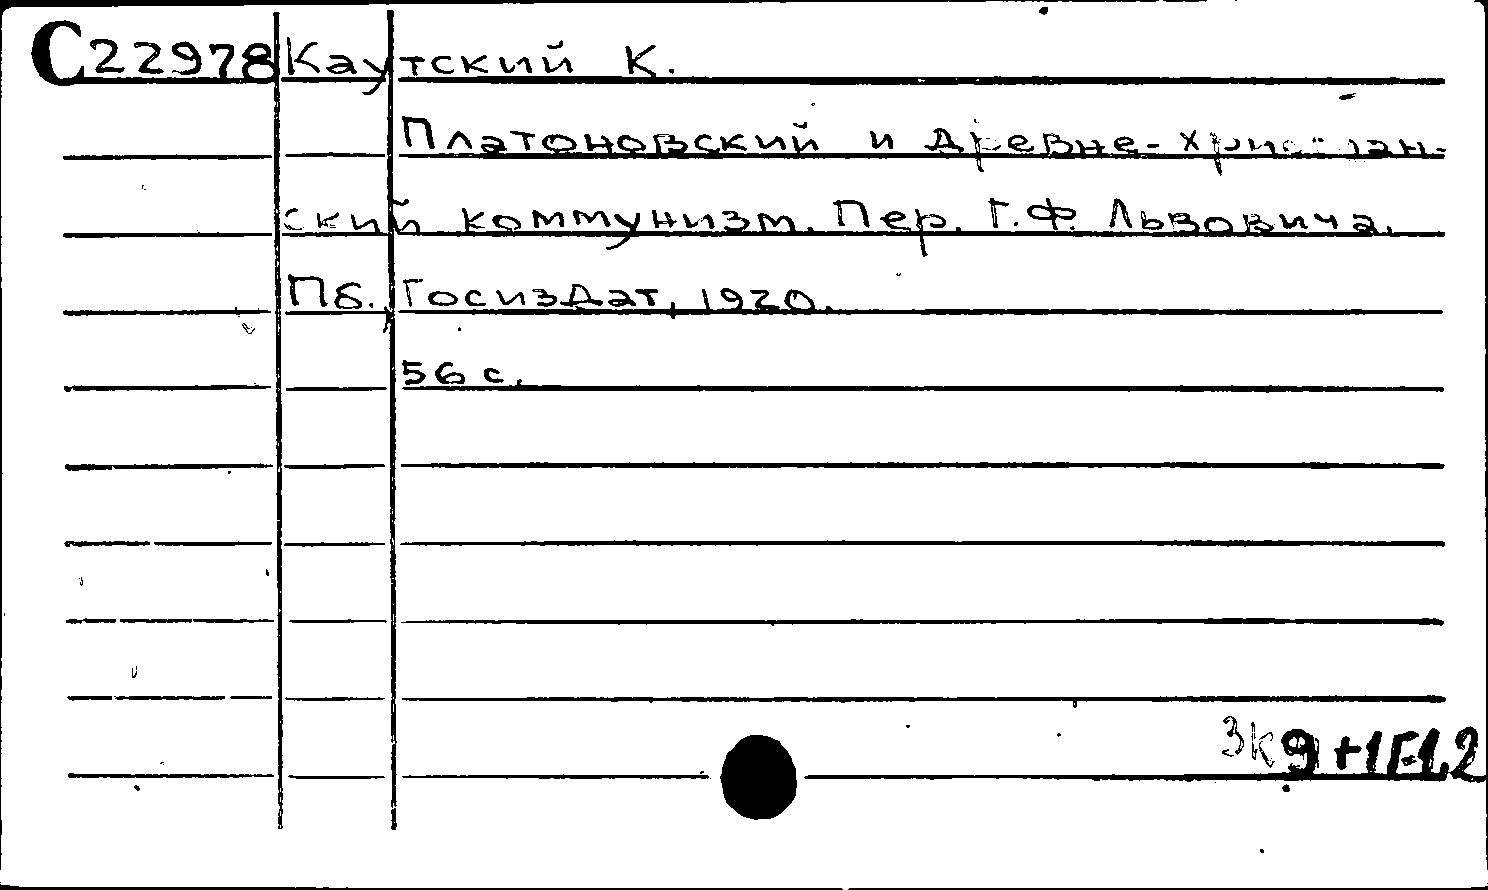 С22978 Каутский К.
Платоновский и древне-христиан-
ский коммунизм. Пер. Г.Ф. Львовича.
Пб. Госиздат, 1920.
56 с.